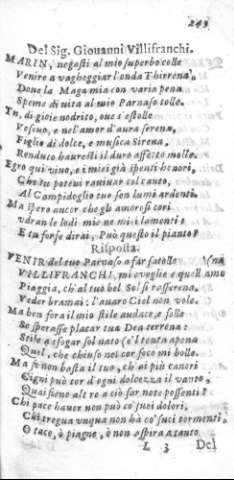 249
Del Sig. Giouanni Villifranchi.
MARIN, negasti al mio superbo colle
Venire a vagheggiar l'onda Thirrena,
Doue la Maga mia con varia pena
Speme di vita al mio Parnaso tolle.
Tu, di gioie nodrito, oue s'estolle
Vesuuo, e nel'amor d'aura serena,
Figlio di dolce, e musica Sirena,
Renduto hauresti il duro affetto molle.
Egro qui viuo, e i miei già spenti honori,
Che tu poteui rauiuar col canto,
Al Campidoglio tuo son lumi ardenti.
Ma spero ancor che gli amorosi cori
vdran le lodi mie ne miei lamenti:
E tu forse dirai, Può questo il pianto?
Risposta.
VENIR del tuo Parnaso a far satolle
VILLIFRANCHI, mi sueglie e quell'ame(na
Piaggia, ch'al tuo bel Sol si rasserena,
Veder bramai: l'auaro Ciel non vole.
Ma ben fora il mio stile audace, e folle
Se sperasse placar tua Dea terrena:
Stile a sfogar sol nato (e'l tenta apena
Quel, che chiuso nel cor foco mi bolle.
Ma se non basta il tuo, ch'ai più canori
Cigni può tor d'ogni dolcezza il vanto,
Quai fieno altre a ciò far note possenti?
Chi pace hauer non può co' suoi dolori,
Chi tregua vnqua non hà co' suoi tormenti,
O taco, ò piagne, ò non aspira a tanto.
L 3 Del